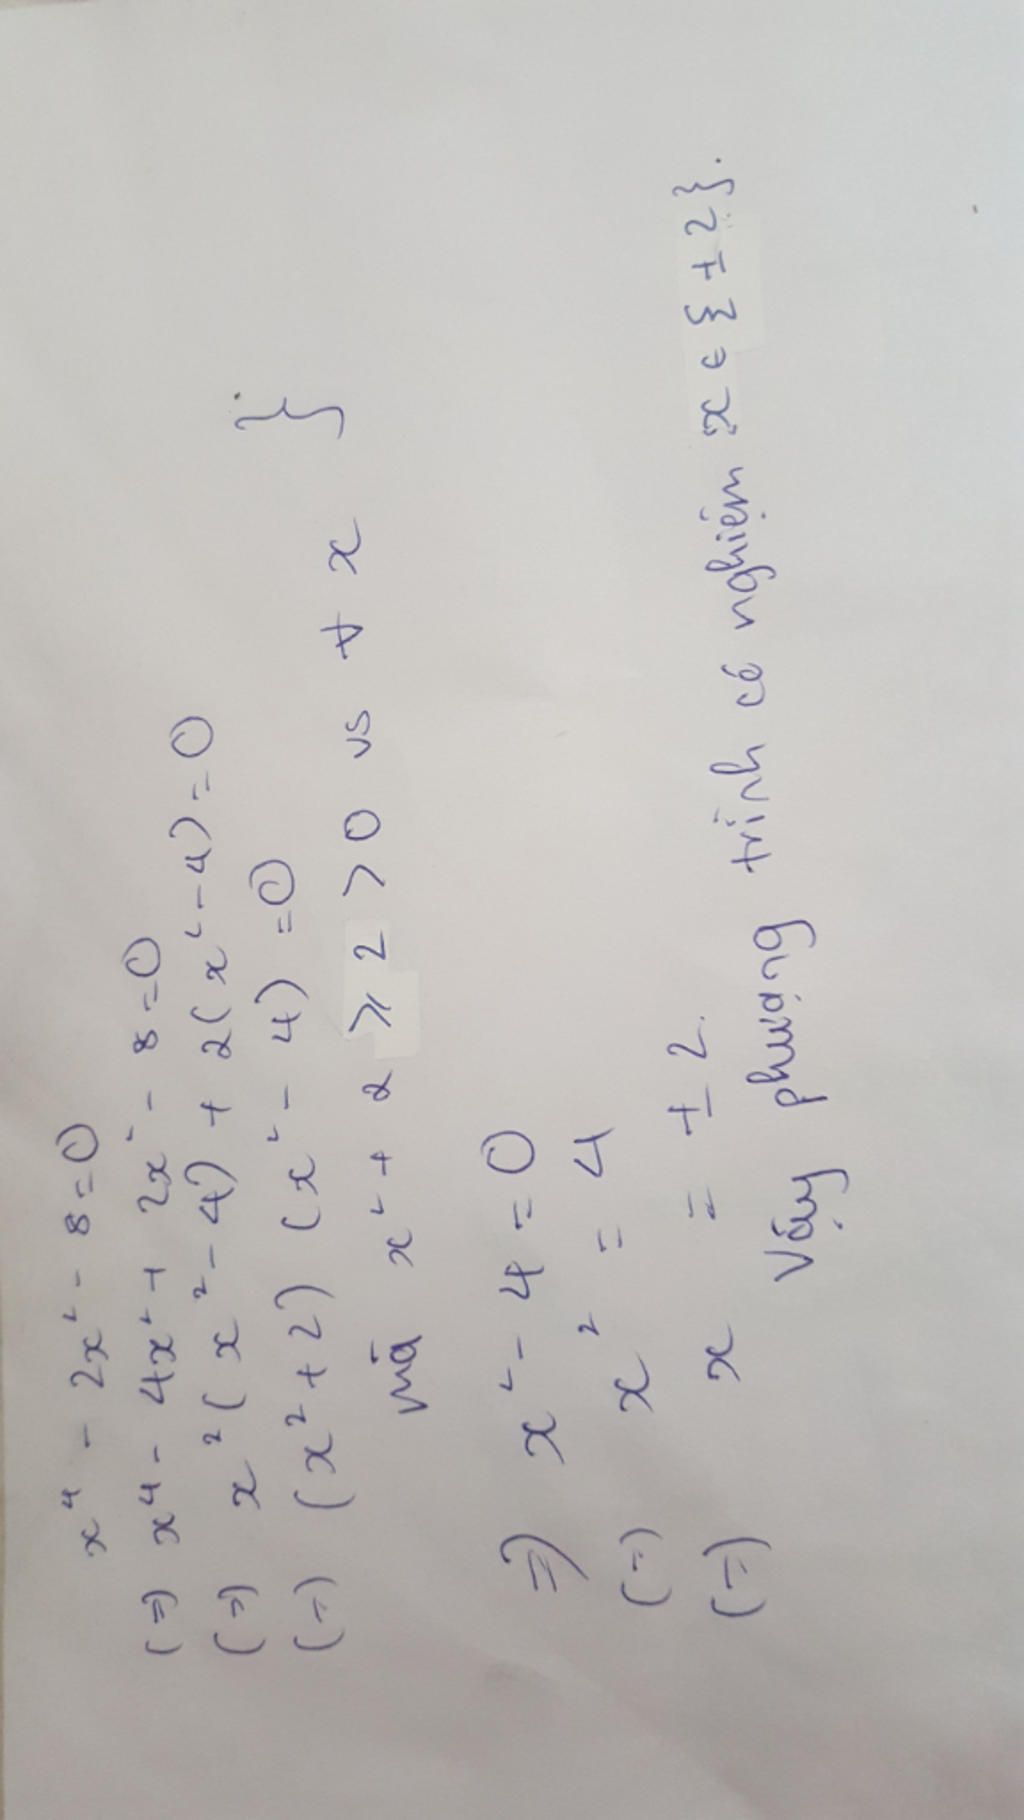 x⁴ - 2x² - 8 = 0
(=) x⁴ - 4x² + 2x² - 8 = 0
(=) x²(x² - 4) + 2(x² - 4) = 0
(=) (x² + 2)(x² - 4) = 0 }
mà x² + 2 ⩾ 2 > 0 vs ∀ x
=) x² - 4 = 0
(=) x² = 4
(=) x = ± 2.
Vậy phương trình có nghiệm x ∈ { ± 2 }.